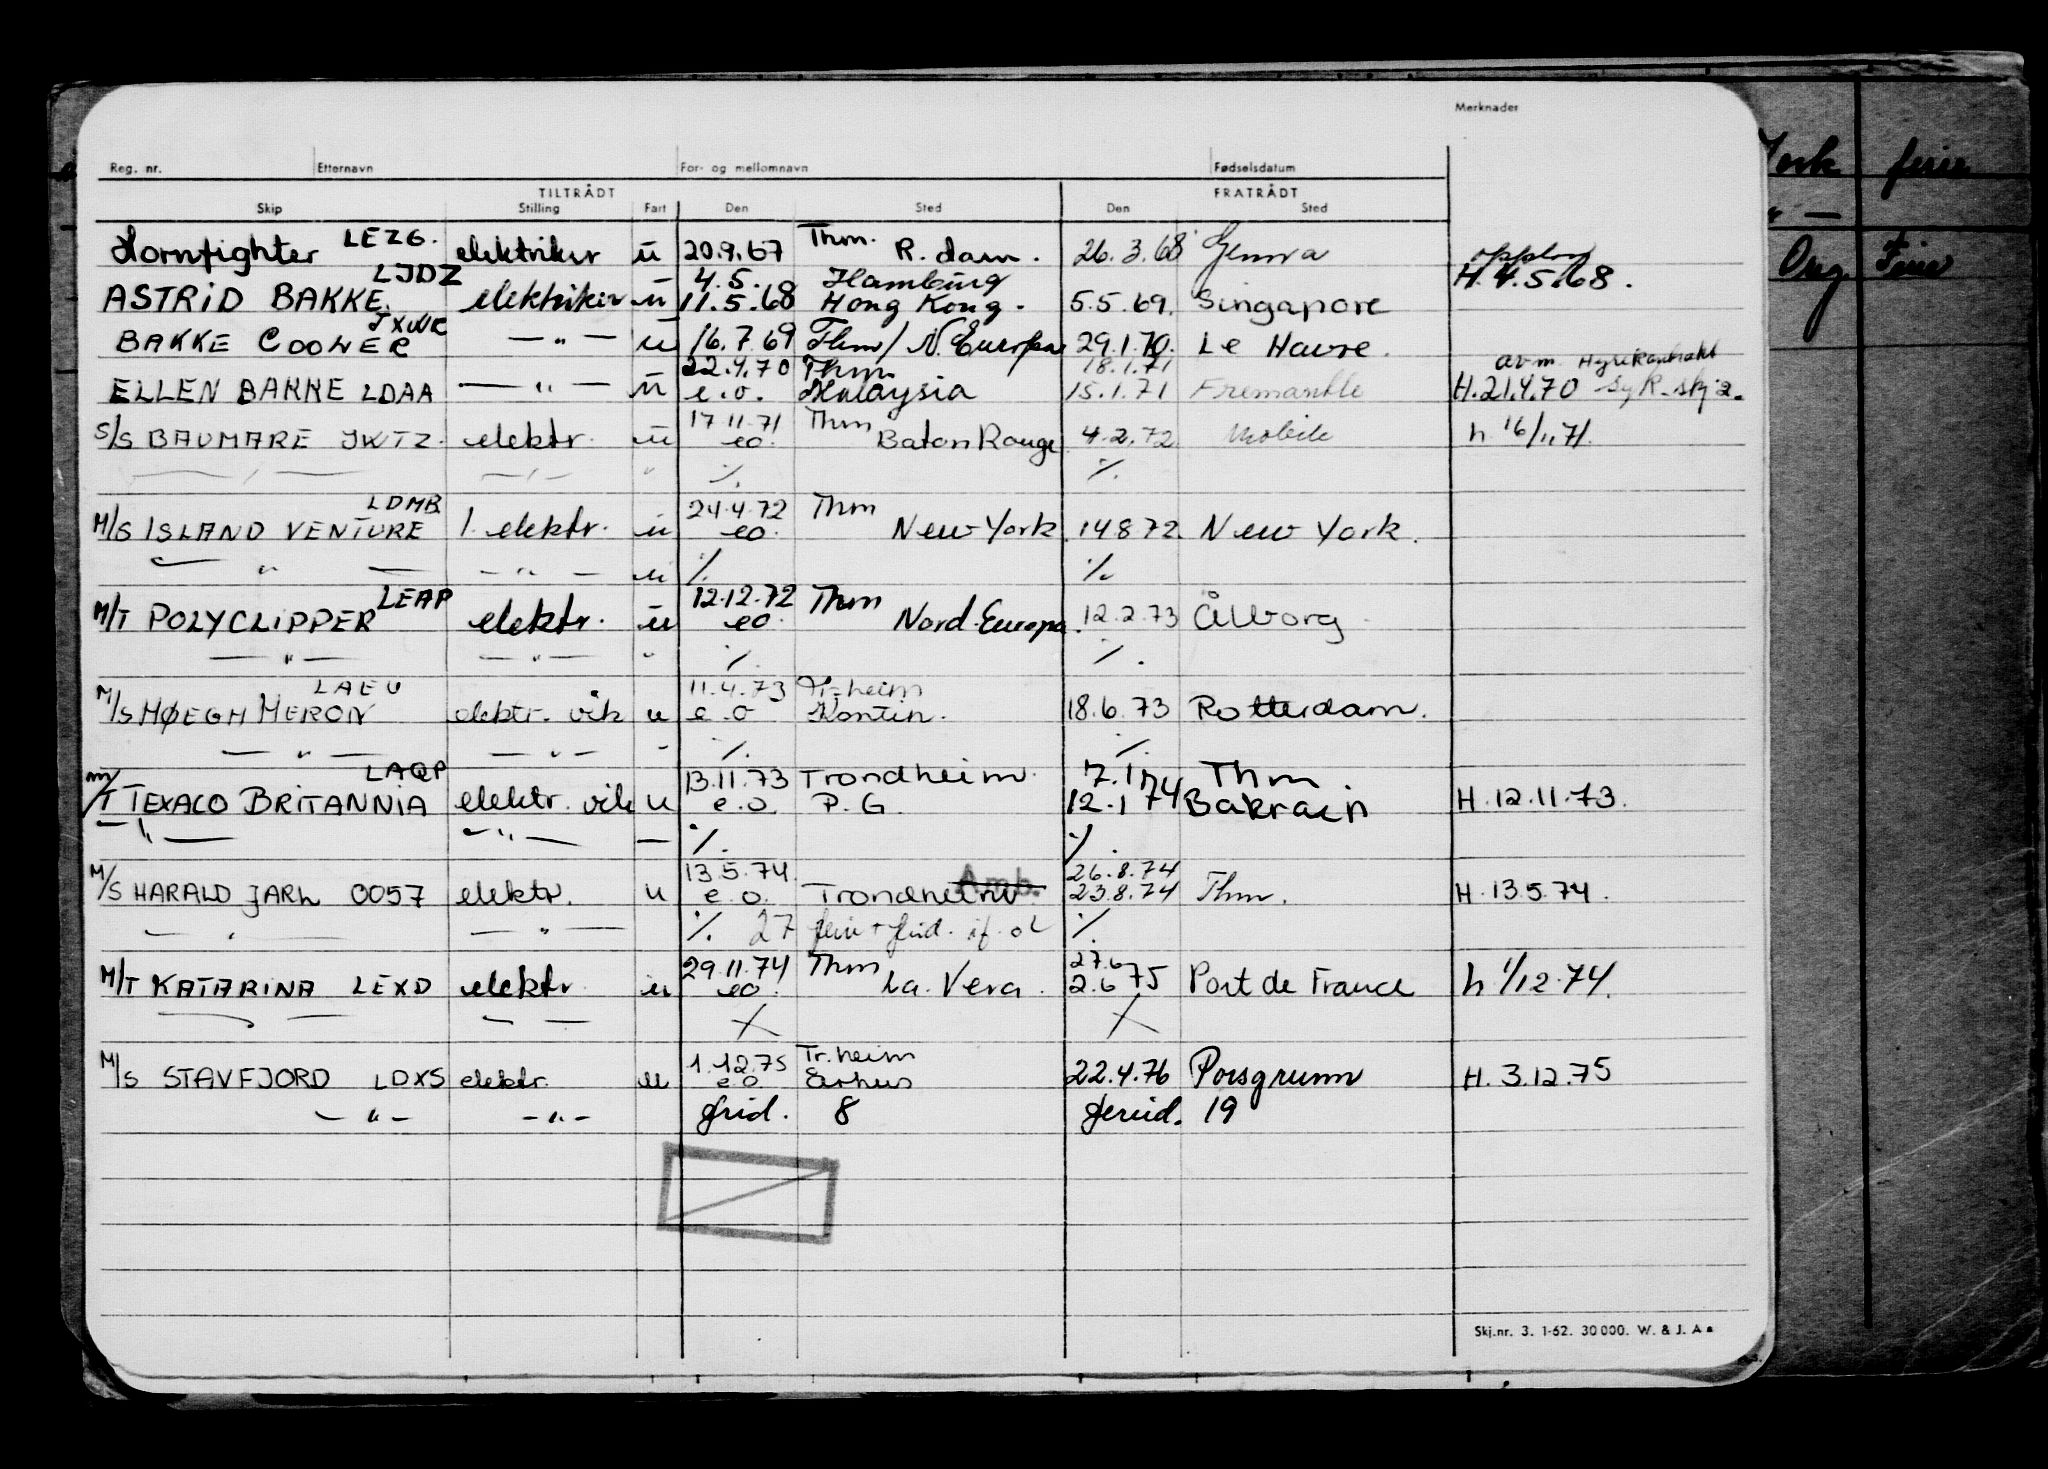 Merknader
Reg. nr. Etternavn For- og mellomnavn Fødselsdatum
TILTRÅDT FRATRÅDT
Skip Stilling Fart Den Sted Den Sted
York ferie
" —
Aug. Ferie
Hornfighter LEZG. elektriker u 20.9.67 Thm. R. dam. 26.3.68 Genova
LJDZ 4.5. Hamburg H. 4.5.68.
ASTRID BAKKE elektriker u 11.5.68 Hong Kong. 5.5.69. Singapore
JXWR
BAKKE COOLER — " — u 16.7.69 Thm/ N. Europa 29.1.70. Le Havre.
22.4.70 Thm 18.1.71
ELLEN BAKKE LDAA — " — u e.o. Malaysia 15.1.71 Fremantle H.21.4.70
17.11.71 Thm
S/S BAUMARE JWTZ. elektr. u eo. Baton Rouge 4.2.72 Mobile h 16/11.71.
— " — — " — " ./. ./.
LDMB 24.4.72 Thm
M/S ISLAND VENTURE 1. elektr. u eo. New York 14.8.72. New York.
— " — — " — u ./. ./.
LEAP 12.12.72 Thm
M/T POLYCLIPPER elektr. u eo. Nord-Europa. 12.2.73 Ålborg
— " — — " — " ./. ./.
LAEU 11.4.73 Tr-heim
M/S HØEGH MERON elektr. vik u e.o Kontin. 18.6.73 Rotterdam.
— " — — " — " ./. ./.
LAQP 13.11.73 Trondheim. 7.1.74 Thm
m/T TEXACO BRITANNIA elektr. vik u e.o. P.G. 12.1.74 Bakrain H.12.11.73.
— " — — " — — ./. ./.
13.5.74. Amb. 26.8.74
M/S HARALD JARL 0057 elektr. u e.o. Trondheim 23.8.74 Thm. H.13.5.74.
— " — — " — ./. 27 ./.
29.11.74 Thm 27.6
M/T KATARINA LEXD elektr. u eo. La. Vera. 2.6.75 Port de France h 1/12.74.
— " — — —
1.12.75 Tr.heim
M/S STAVFJORD LDXS elektr. u e.o Aarhus 22.4.76 Porsgrunn H. 3.12.75
— " — — " — frid. 8 ferid. 19
Skj.nr. 3. 1-62. 30 000. W. & J. A s